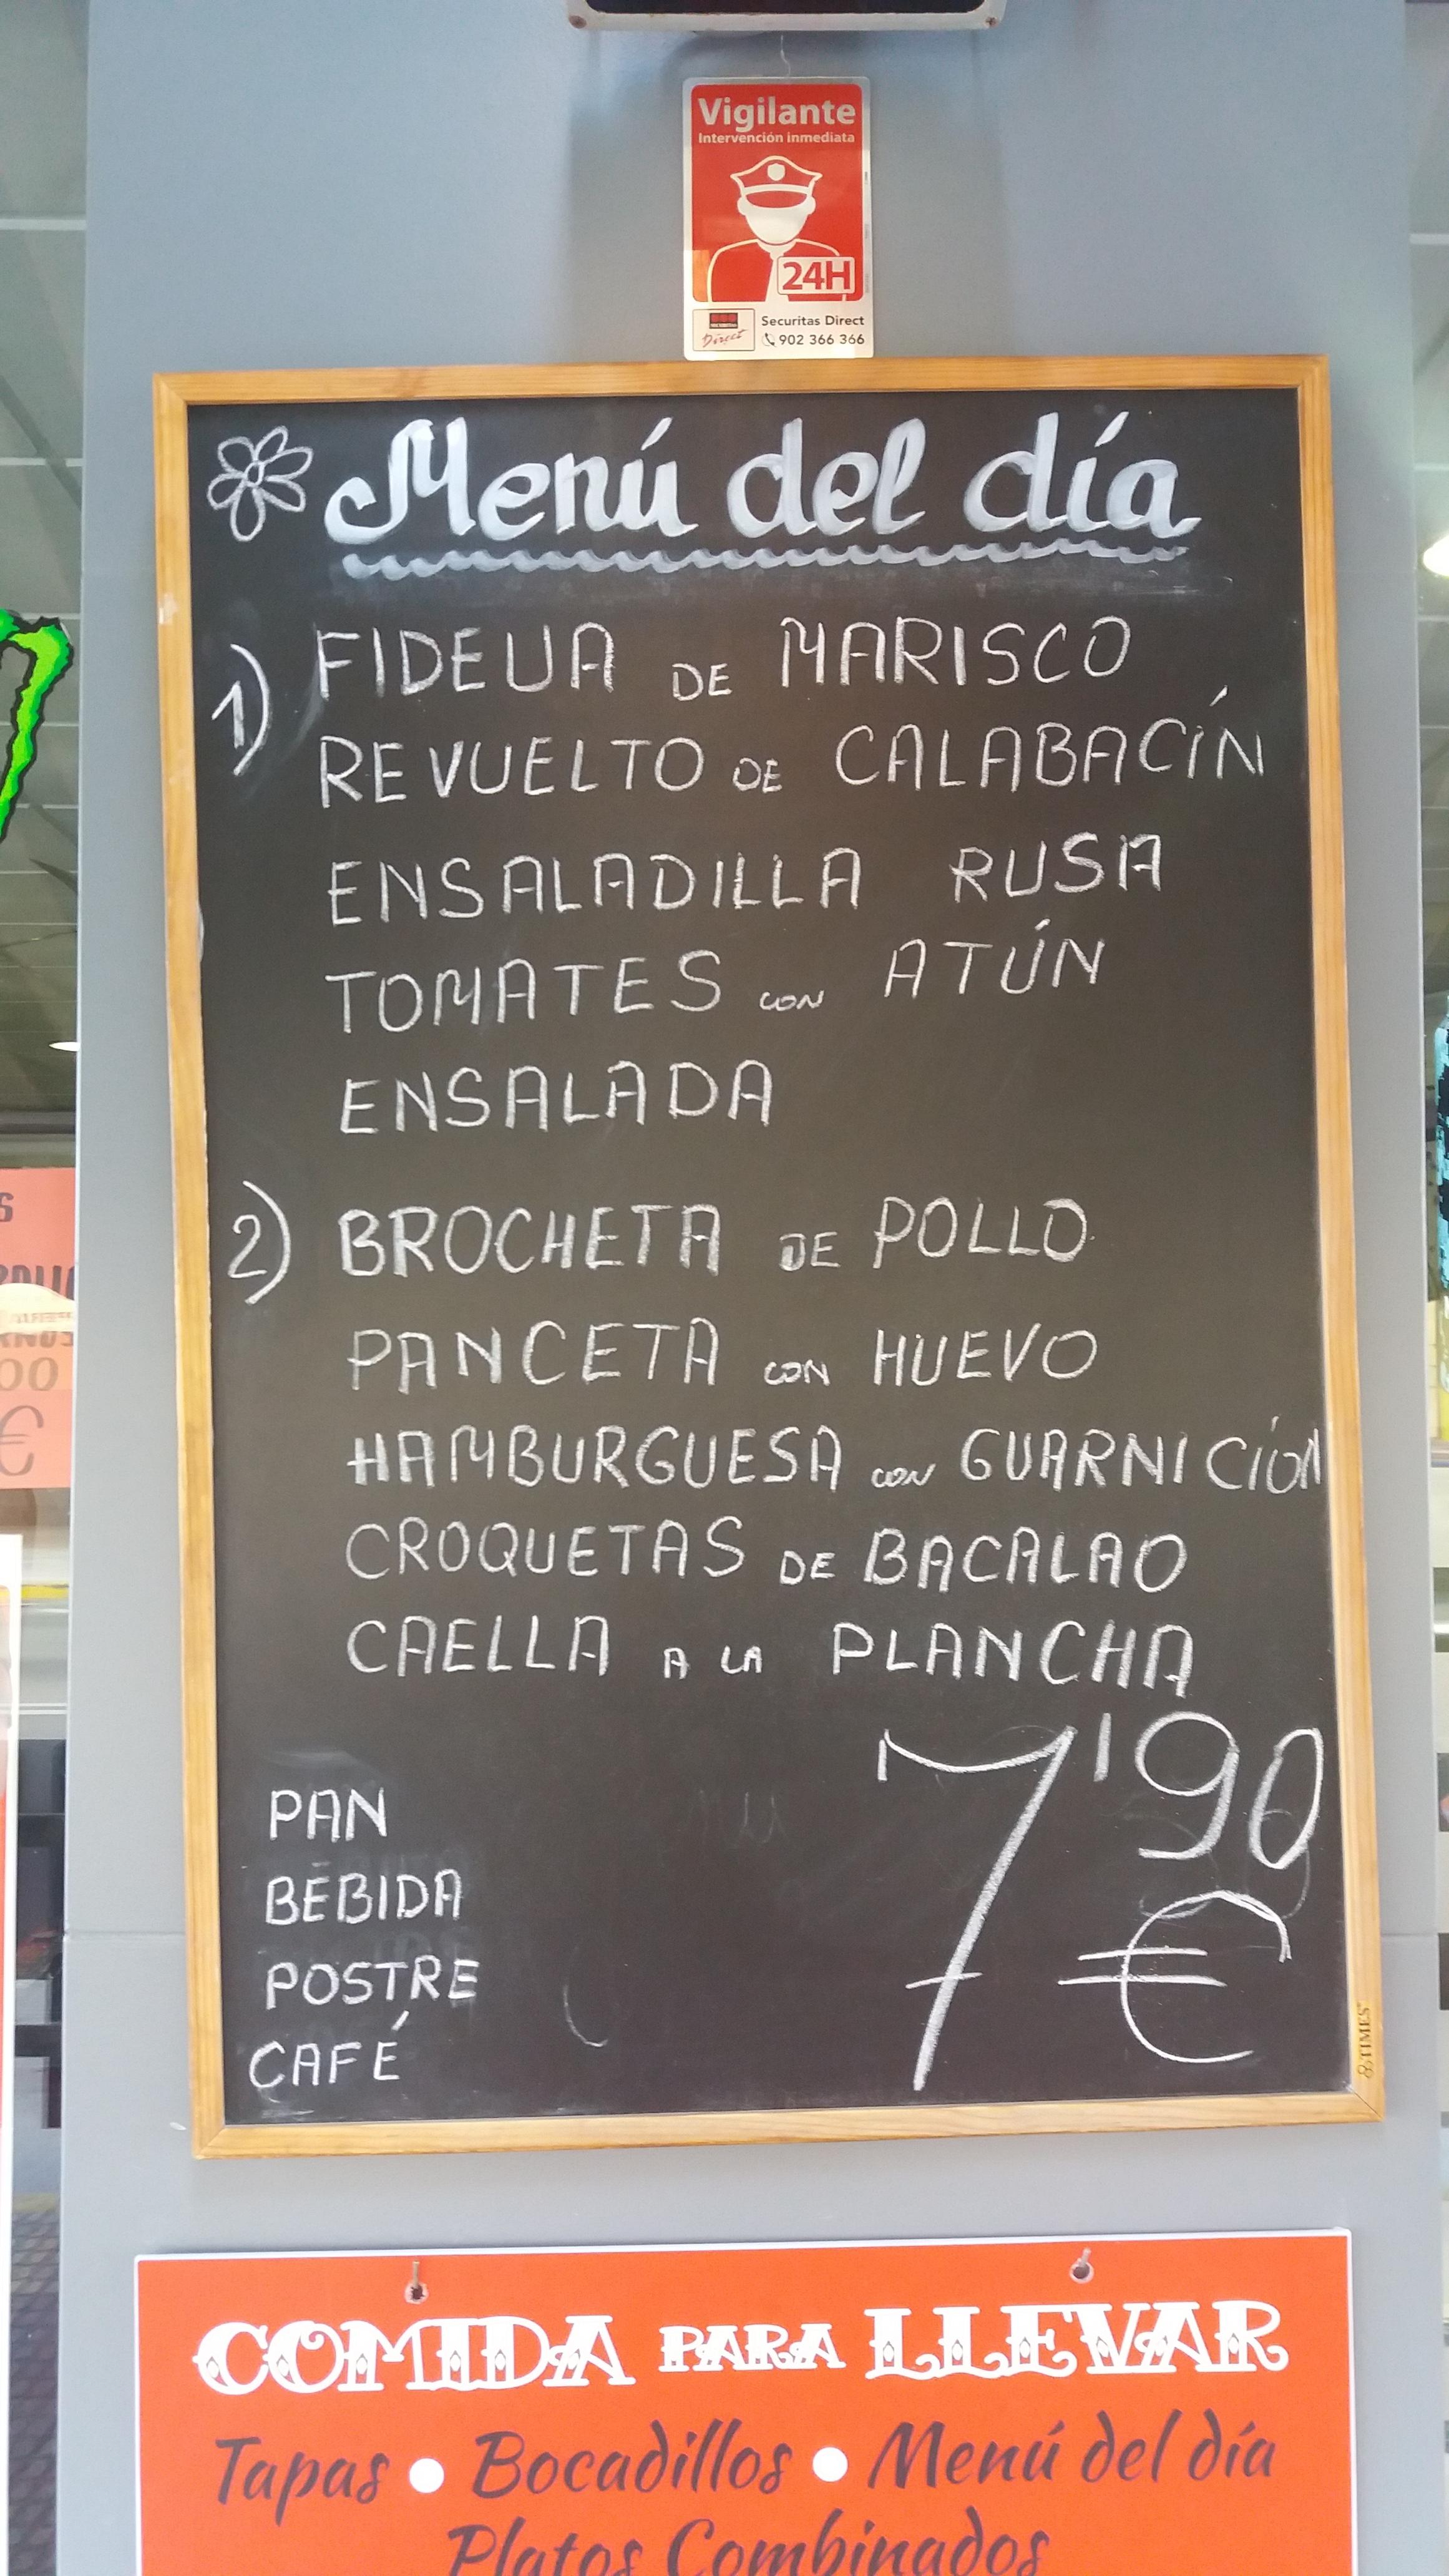 Vigilante
Intervención inmediata
24H
Securitas Direct
902 366 366
Menú del día
1) FIDEUA DE MARISCO
REVUELTO DE CALABACÍN
ENSALADILLA RUSA
TOMATES CON ATÚN
ENSALADA
2) BROCHETA DE POLLO
PANCETA CON HUEVO
HAMBURGUESA CON GUARNICÍON
CROQUETAS DE BACALAO
CAELLA A LA PLANCHA
7'90
€
PAN
BEBIDA
POSTRE
CAFÉ
TIMES
COMIDA PARA LLEVAR
Tapas • Bocadillos • Menú del día
Platos Combinados